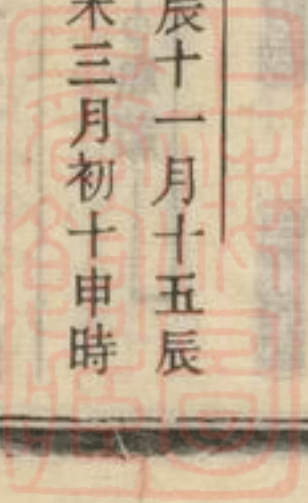 辰十一月十五辰
未三月初十申時